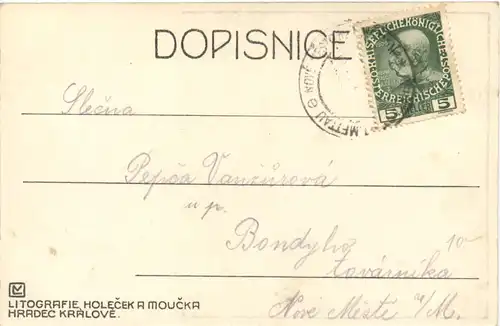 DOPISNICE
KAISERL. KÖNIGLICHE
ÖSTERREICHISCHE POST
5 5
METTAU
NOVÉ
Slečna
Pepča Vančurová
u p.
Bondyho
továrníka
10-
Nové Město n/M.
LITOGRAFIE HOLEČEK A MOUČKA
HRADEC KRÁLOVÉ.